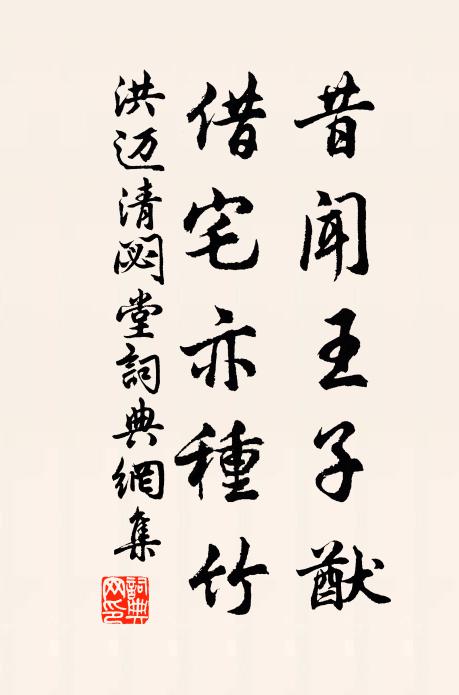 昔聞王子猷
借宅亦種竹
洪迈清閟堂詞典網集
詞典网印